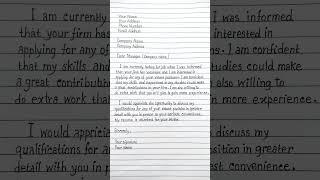 Your Name
Your Address
Phone Number
Email Address
Company Name
Company Address
Dear Manager (company name),
I am currently looking for job when I was informed
that your firm has vacancies and I am interested in
applying for any of your vacant positions. I am confident
that my skills and in my studies could make
a great contributions to your firm. I am also willing to
do extra work that will gain more experience.
I would appreciate the opportunity to discuss my
qualifications for any of your vacant position in greater
detail with you in person at your earliest convenience.
My resume is attached for your
Sincerely,
Your Signature
Your Name
I am currently
that your firm
applying for any
that my skills
a great
do extra work
I would
qualifications for
detail with you
I was informed
interested in
I am confident
could make
also willing to
more experience.
discuss my
in greater
convenience.